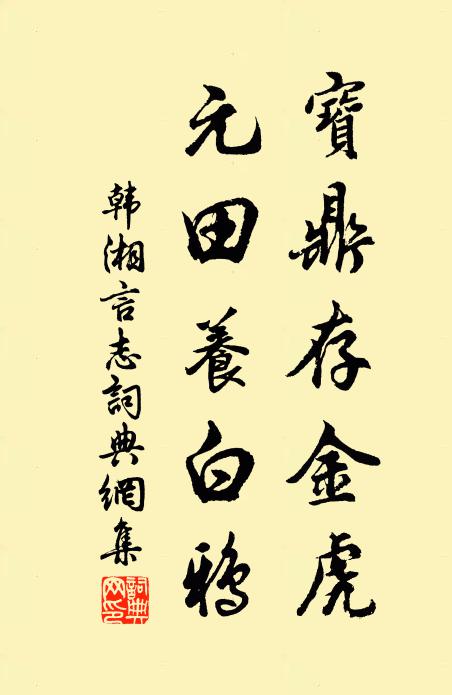 寶鼎存金虎
元田養白鴉
韓湘言志詞典網集
詞典网印